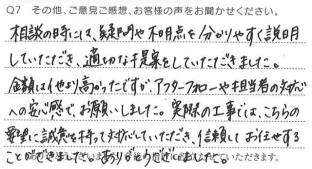 Q7 その他、ご意見ご感想、お客様の声をお聞かせください。
相談の時には、疑問や不明点を分かりやすく説明
していただき、適切な提案をしていただきました。
金額は他より高かったですが、アフターフォローや担当者の対応
への安心感で、お願いしました。実際の工事では、こちらの
要望に誠意を持って対応していただき、信頼してお任せする
ことができました。ありがとうございました。